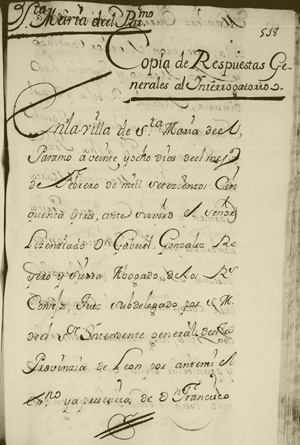 Sta María del Pmo
518
Copia de Respuestas Ge-
nerales al Interrogatorio
En la villa de Sta María del
Paramo a veinte y ocho dias del mes
de febrero de mill setezientos Cin
quenta y tres, ante su mrd el señor
Lizenziado Dn Gabriel Gonzalez Re
yero y Abogado de los Rs
Consejos, Juez subdelegado por S. M.
del Sr Intendente general de esta
Provinzia de Leon por ante mi el
Enno y a presencia de Dn Francisco